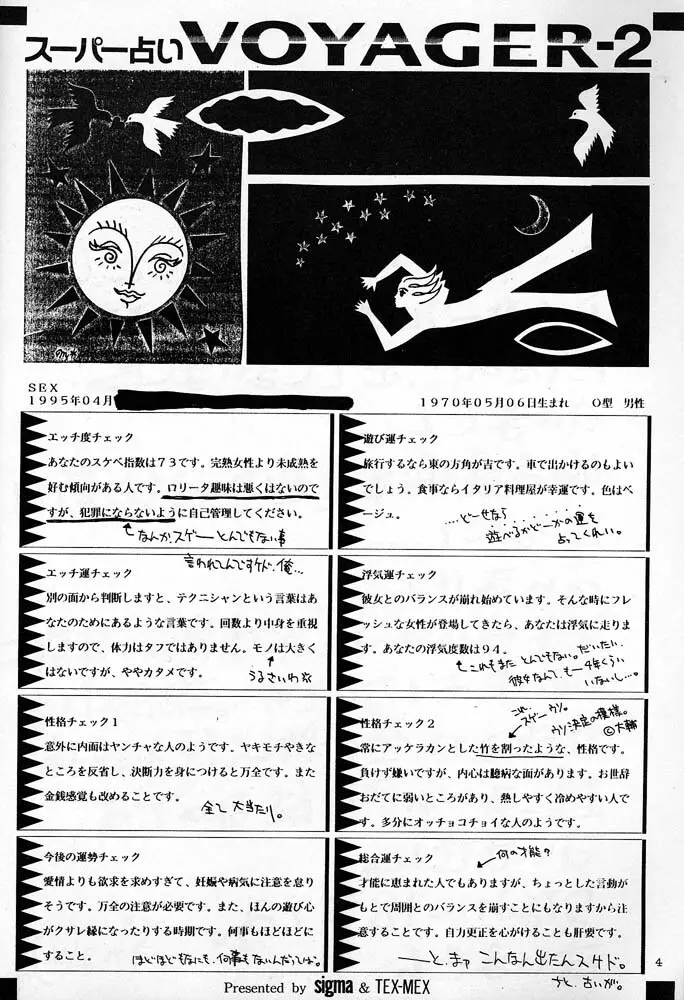 スーパー占い VOYAGER-2
SEX
1995年04月
1970年05月06日生まれ　O型　男性
エッチ度チェック
あなたのスケベ指数は73です。完熟女性より未成熟を
好む傾向がある人です。ロリータ趣味は悪くはないので
すが、犯罪にならないように自己管理してください。
なんか、スゲーとんでもない事
言われてんですケド、俺…
エッチ運チェック
別の面から判断しますと、テクニシャンという言葉はあ
なたのためにあるような言葉です。回数より中身を重視
しますので、体力はタフではありません。モノは大きく
はないですが、ややカタメです。
うるさいわ
性格チェック1
意外に内面はヤンチャな人のようです。ヤキモチやきな
ところを反省し、決断力を身につけると万全です。また
金銭感覚も改めることです。
全て大当たり。
今後の運勢チェック
愛情よりも欲求を求めすぎて、妊娠や病気に注意を怠り
そうです。万全の注意が必要です。また、ほんの遊び心
がクサレ縁になったりする時期です。何事もほどほどに
すること。
ほどほどもなにも、何事もないんだってば。
遊び運チェック
旅行するなら東の方角が吉です。車で出かけるのもよい
でしょう。食事ならイタリア料理屋が幸運です。色はベ
ージュ。
…どーせなら
遊べるかどーかの運を
占ってくれい。
浮気運チェック
彼女とのバランスが崩れ始めています。そんな時にフレ
ッシュな女性が登場してきたら、あなたは浮気に走りま
す。あなたの浮気度数は94。
これもまたとんでもない。だいたい、
彼女なんて、もー4年くらい
いないし…。
これ、
スゲーウソ。
ウソ決定の模様。
©大輔
性格チェック2
常にアッケラカンとした竹を割ったような、性格です。
負けず嫌いですが、内心は臆病な面があります。お世辞
おだてに弱いところがあり、熱しやすく冷めやすい人で
す。多分にオッチョコチョイな人のようです。
総合運チェック
何の才能?
才能に恵まれた人でもありますが、ちょっとした言動が
もとで周囲とのバランスを崩すことにもなりますから注
意することです。自力更正を心がけることも肝要です。
――と、まァこんなん出たんスケド。
ちと、古いが。
4
Presented by sigma & TEX-MEX